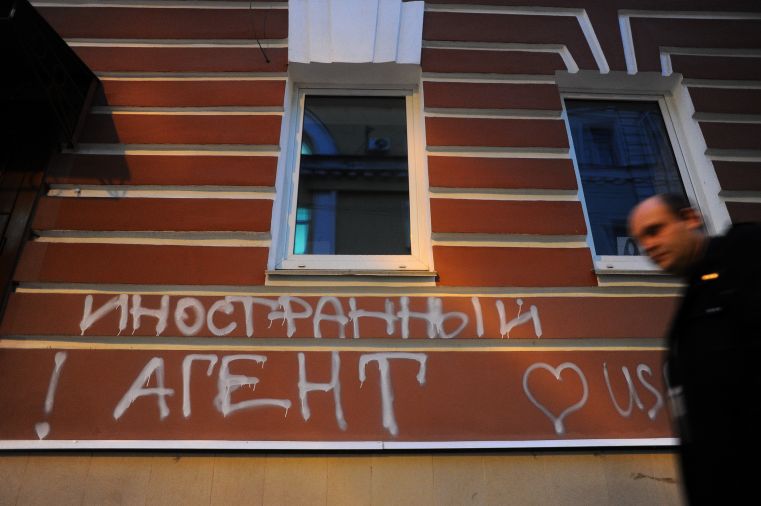 ИНОСТРАННЫЙ
! АГЕНТ ♥ USA